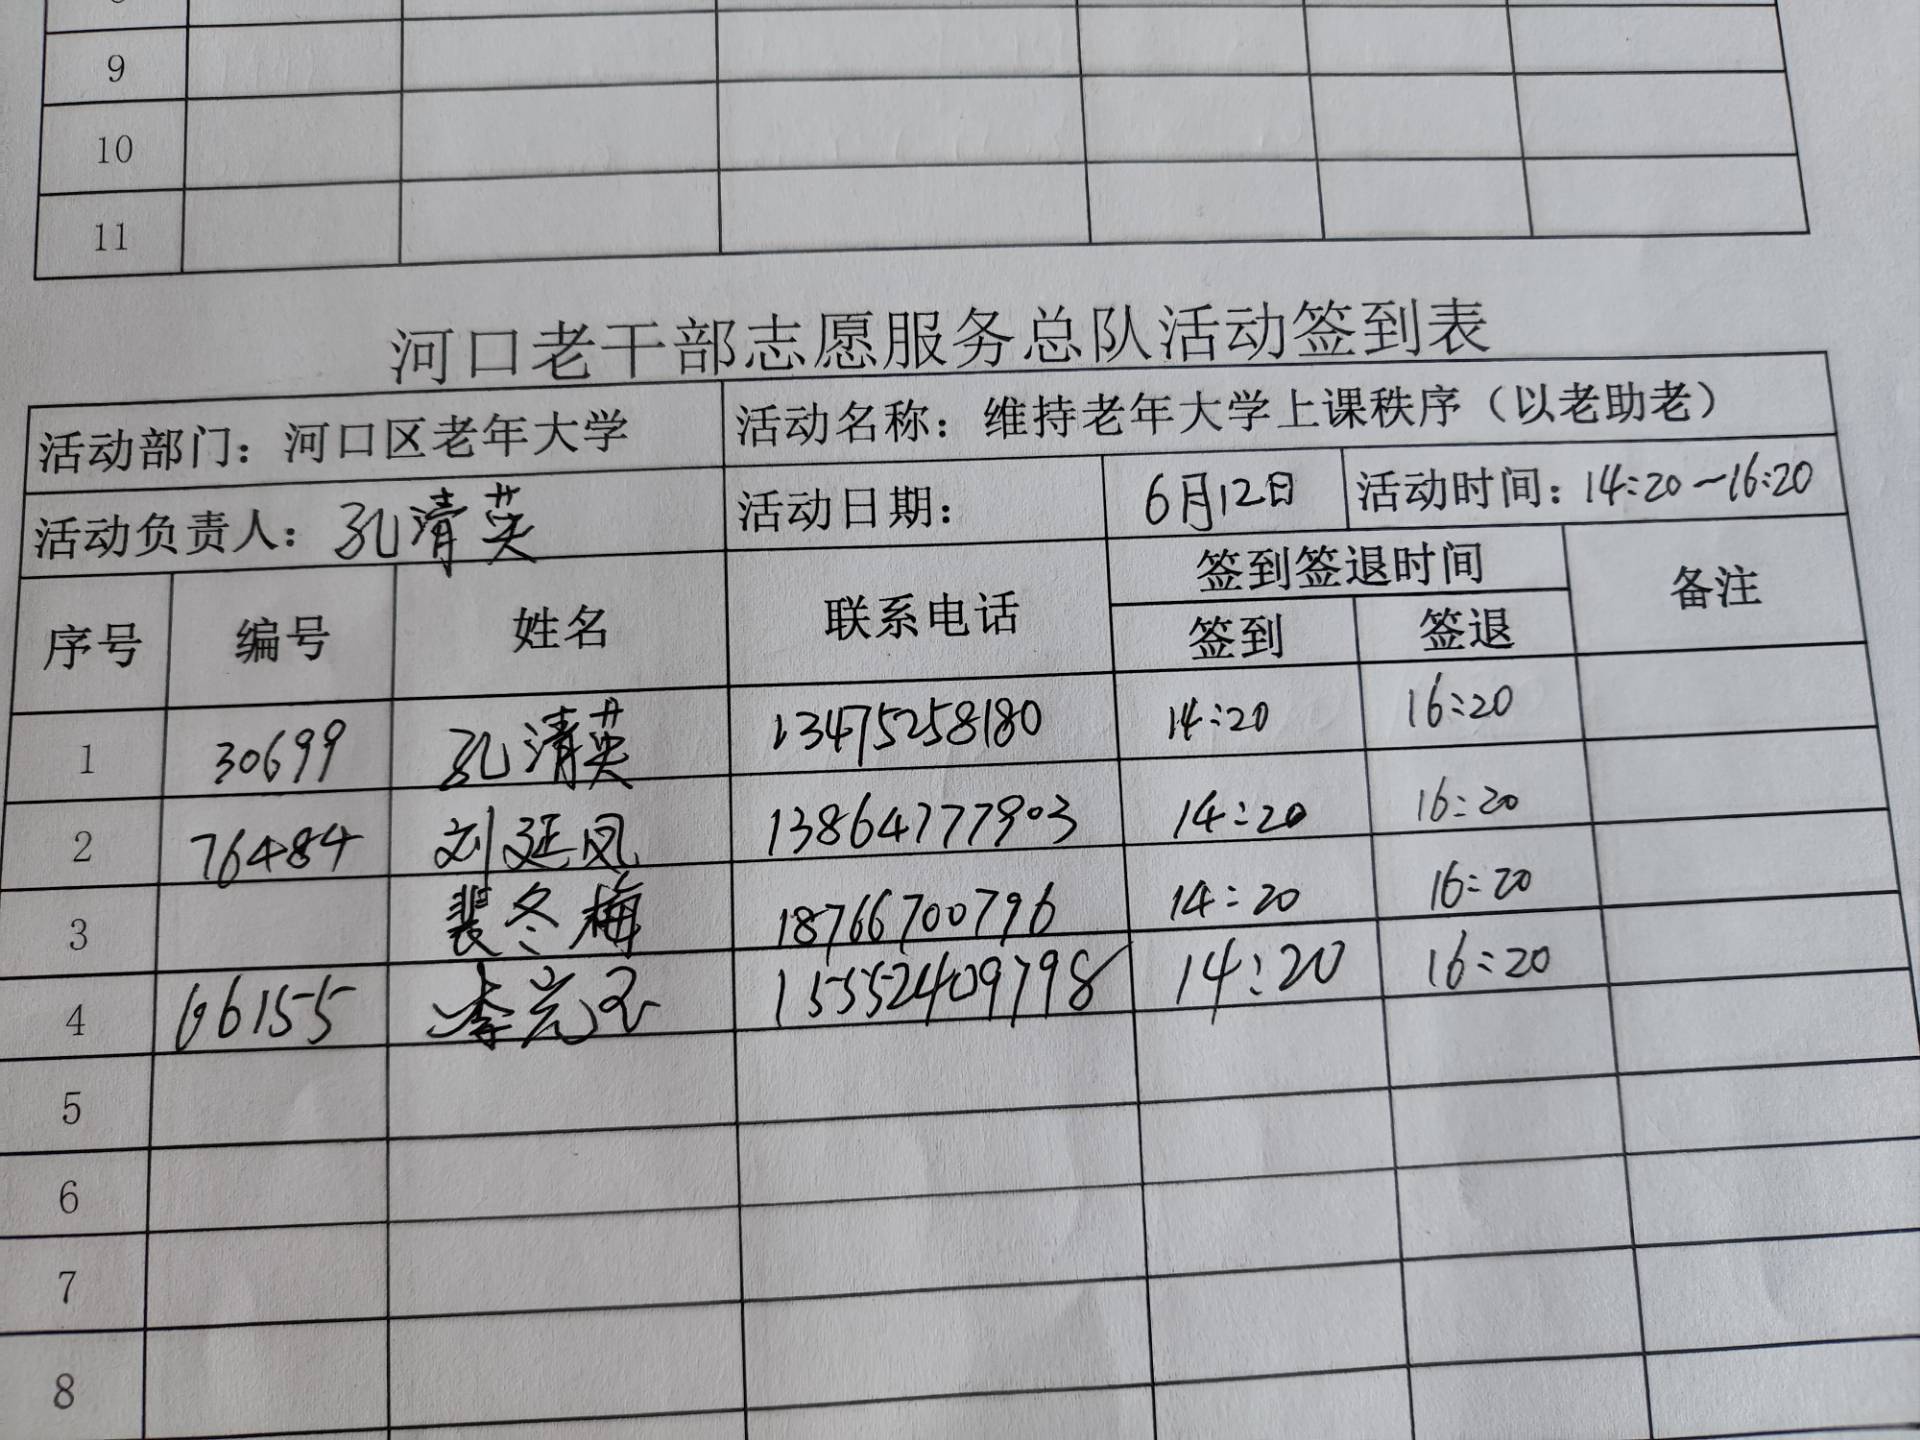 9
10
11
河口老干部志愿服务总队活动签到表
活动部门：河口区老年大学 活动名称：维持老年大学上课秩序（以老助老）
活动负责人：孔清英 活动日期： 6月12日 活动时间：14:20-16:20
序号 编号 姓名 联系电话 签到签退时间 备注
签到 签退
1 30699 孔清英 13475258180 14:20 16:20
2 76484 刘延凤 13864777903 14:20 16:20
3 裴冬梅 18766700796 14:20 16:20
4 66155 李光玉 15552409798 14:20 16:20
5
6
7
8